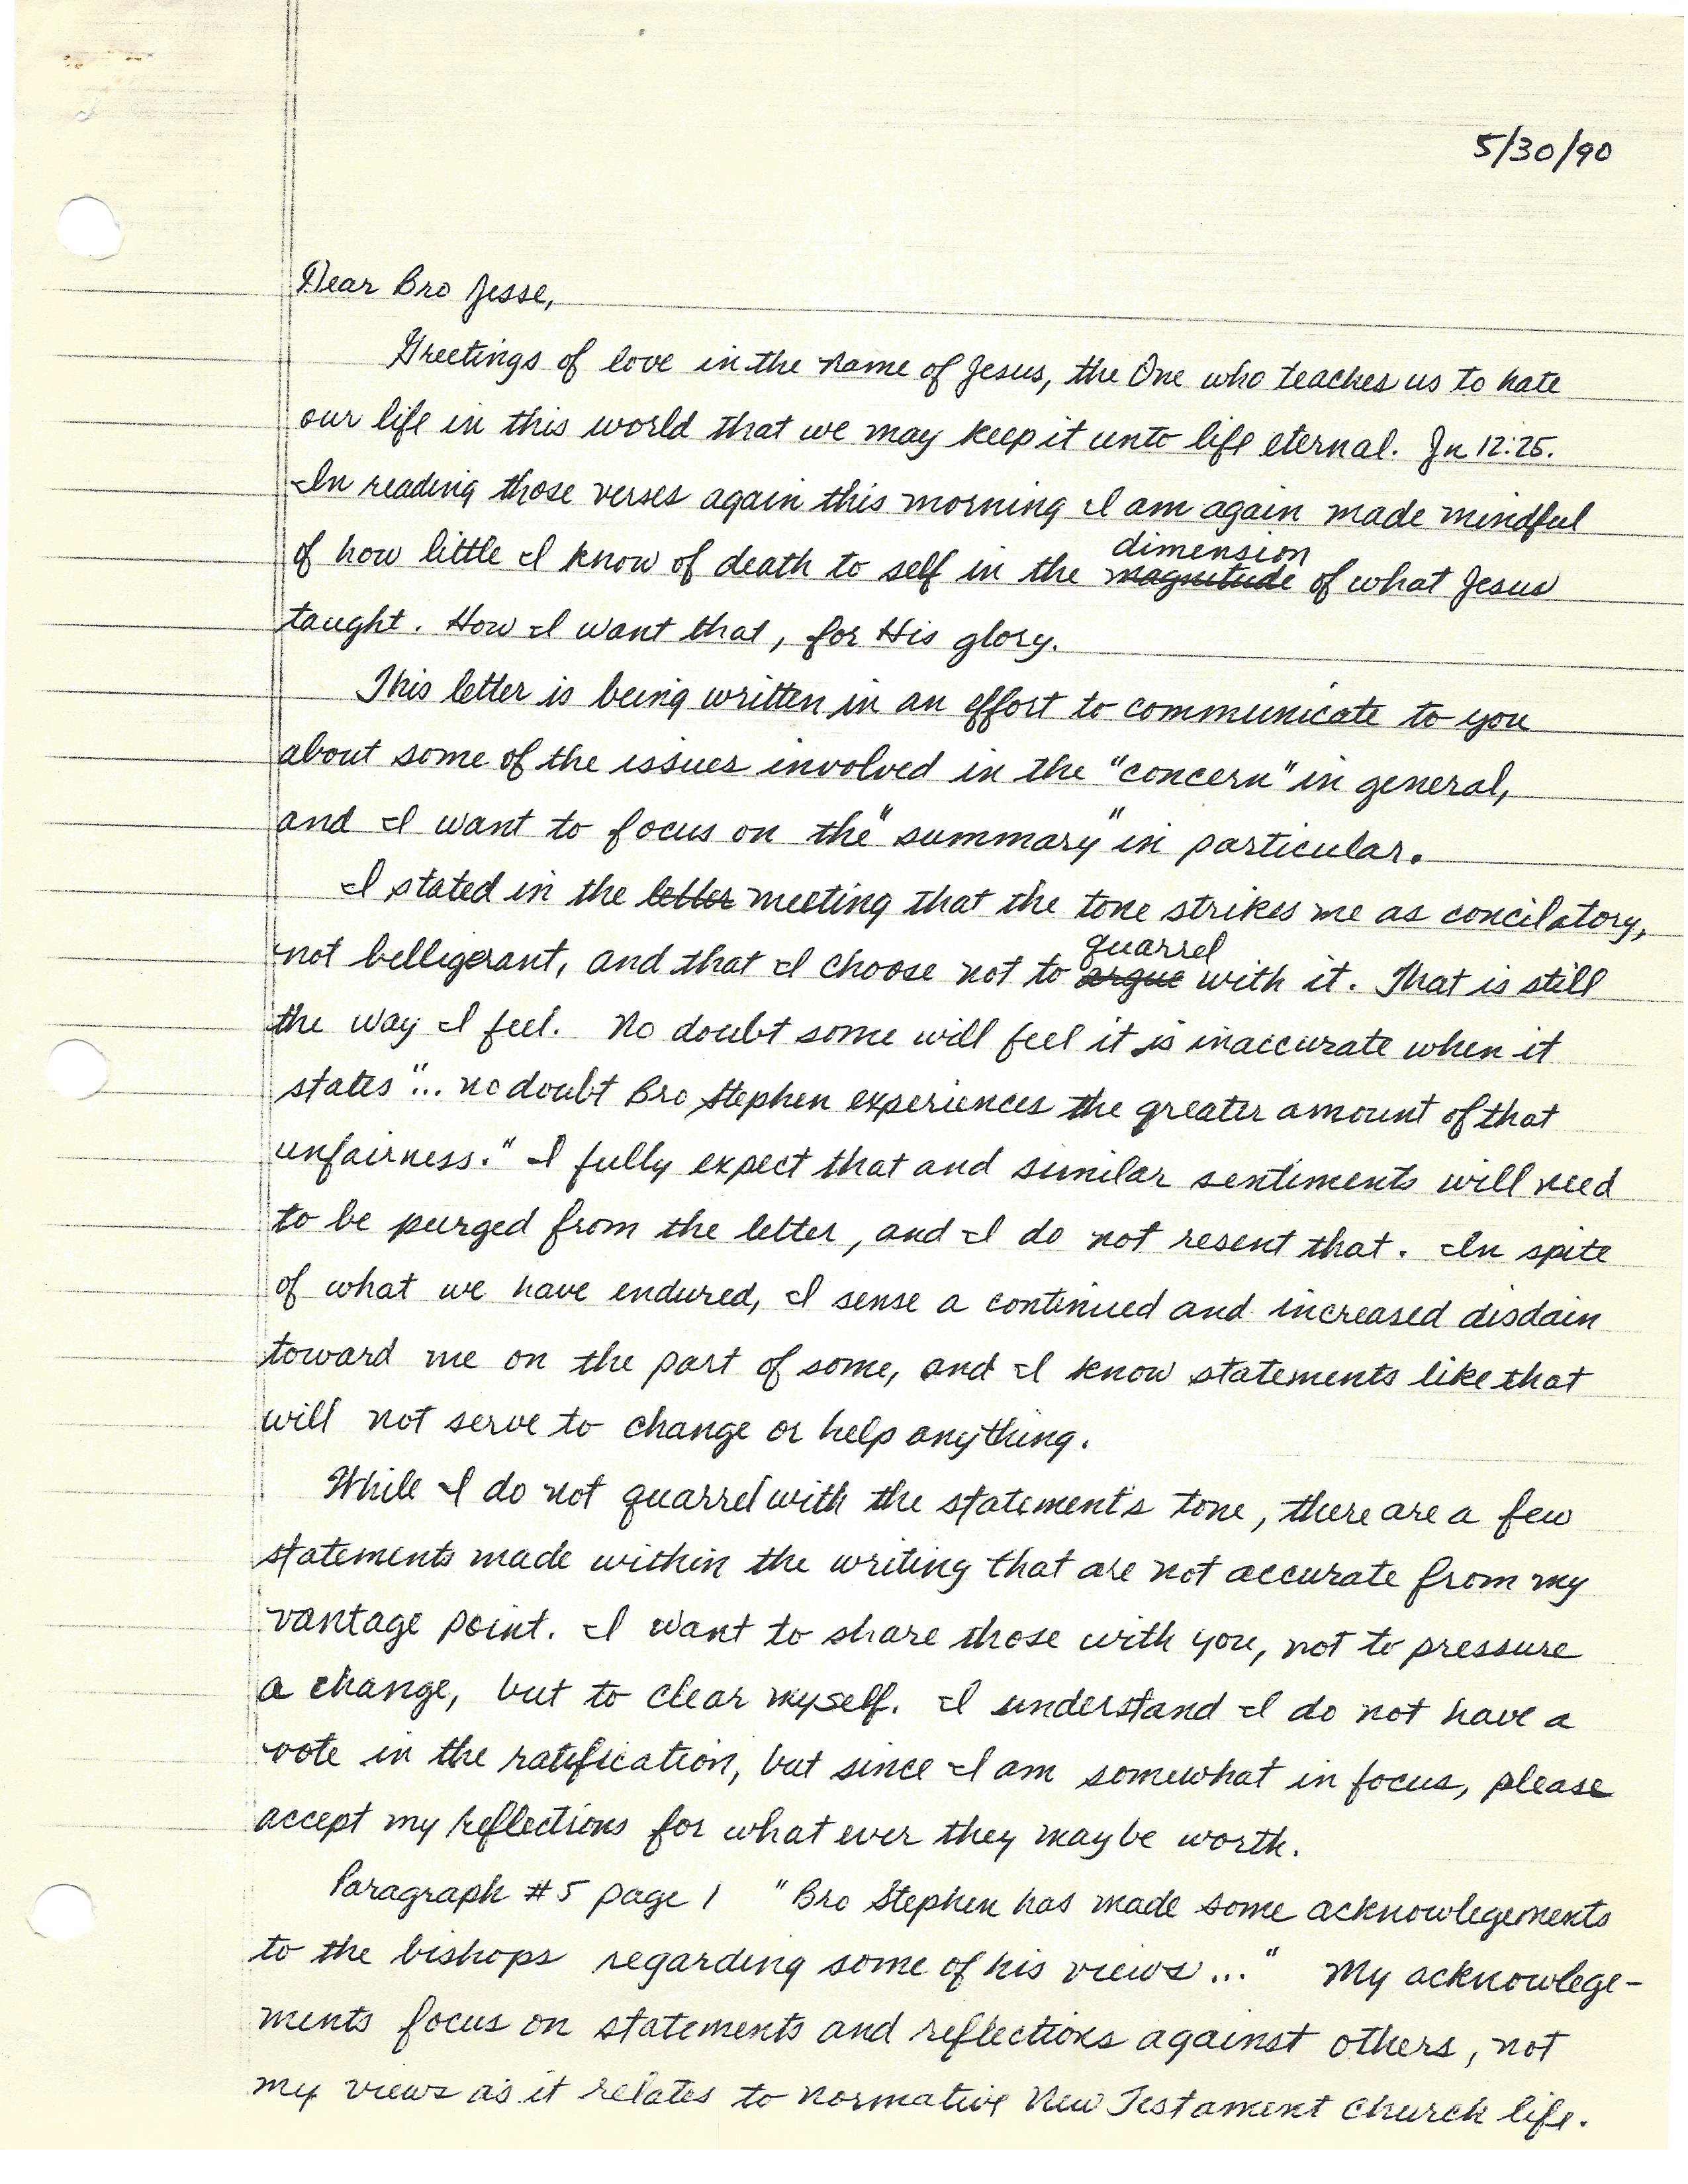 5/30/90
Dear Bro Jesse,
Greetings of love in the name of Jesus, the One who teaches us to hate
our life in this world that we may keep it unto life eternal. Jn 12:25.
In reading those verses again this morning I am again made mindful
dimension
of how little I know of death to self in the magnitude of what Jesus
taught. How I want that, for His glory.
This letter is being written in an effort to communicate to you
about some of the issues involved in the "concern" in general,
and I want to focus on the "summary" in particular.
I stated in the letter meeting that the tone strikes me as concilatory,
quarrel
not belligerant, and that I choose not to argue with it. That is still
the way I feel. No doubt some will feel it is inaccurate when it
states "... no doubt Bro Stephen experiences the greater amount of that
unfairness." I fully expect that and similar sentiments will need
to be purged from the letter, and I do not resent that. In spite
of what we have endured, I sense a continued and increased disdain
toward me on the part of some, and I know statements like that
will not serve to change or help anything.
While I do not quarrel with the statement's tone, there are a few
statements made within the writing that are not accurate from my
vantage point. I want to share those with you, not to pressure
a change, but to clear myself. I understand I do not have a
vote in the ratification, but since I am somewhat in focus, please
accept my reflections for what ever they may be worth.
Paragraph #5 page 1 "Bro Stephen has made some acknowlegements
to the bishops regarding some of his views..." My acknowlege-
ments focus on statements and reflections against others, not
my views as it relates to normative New Testament church life.